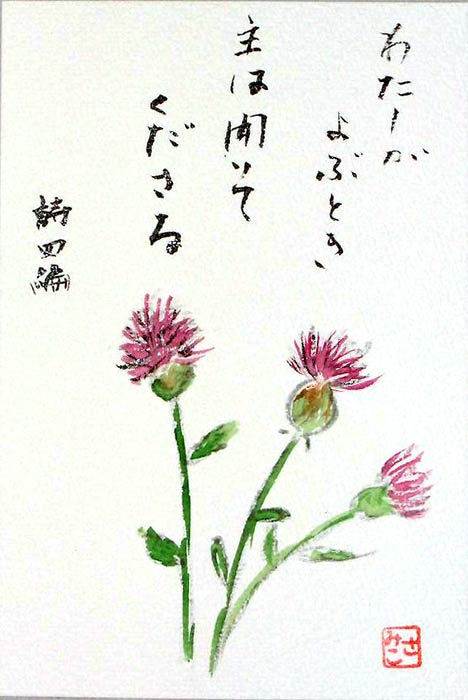 わたしが
よぶとき
主は聞いて
くださる
詩四編